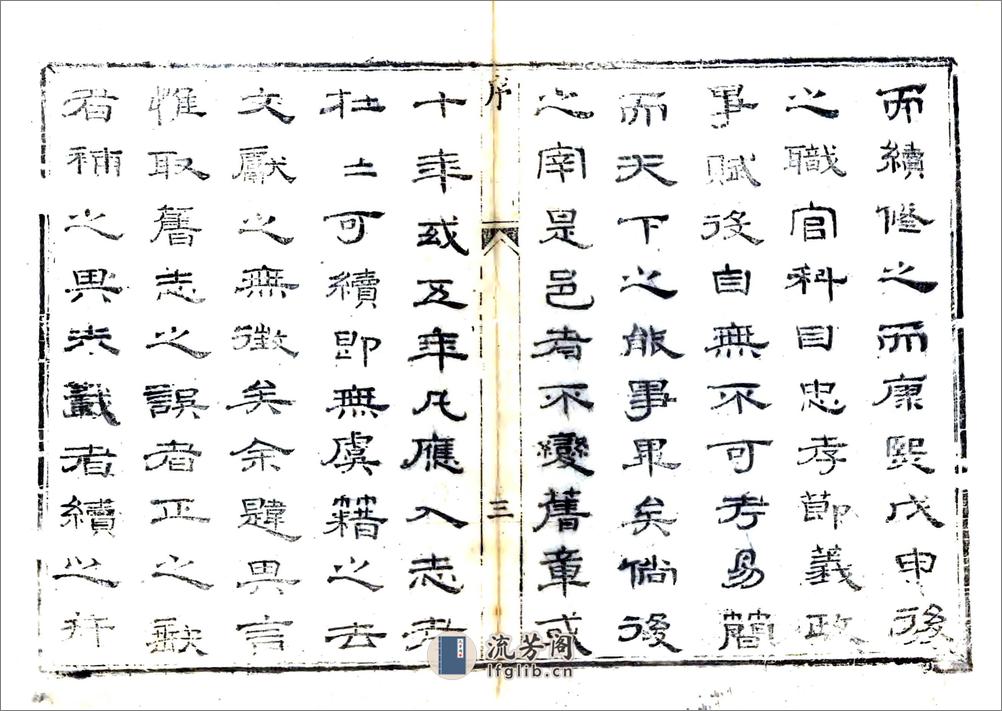 而續修之而康熙戊申後
之職官科目忠孝節義政
事賦役自無不可考易簡
而天下之能事畢矣倘後
之宰是邑者不變舊章或
序
三
十年或五年凡應入志者
可續即無虞籍之去
文獻之無徵矣余韙其言
惟取舊志之誤者正之缺
者補之其未載者續之并
流芳阁
lfglib.cn